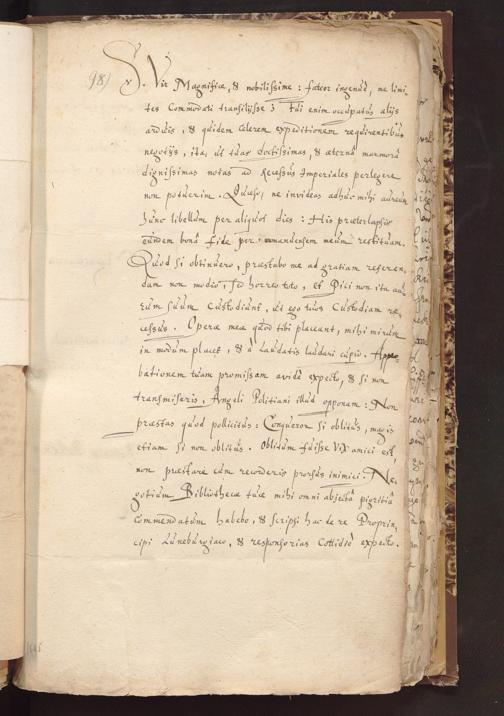 98)
S. Vir Magnifice, & nobilissime: fateor ingenuè, me limi
tes Commodati transilijsse; Fui enim occupatus alijs
arduis, & quidem celerem expeditionem requirentibus
negotijs, ita, ut tuas doctissimas, & aeterna marmora
dignissimas notas ad Recessus Imperiales perlegere
non potuerim. Quaeso, ne invideas adhuc mihi aureum
hunc libellum per aliquot dies: His praeterlapsis
eundem bona fide per manuensem meum restituam.
Quod si obtinuero, praestabo me ad gratiam referen,
dam non modio, sed horreo toto, et Pici non ita au,
rum suum custodiunt, ut ego tuos Custodiam re,
cessus. Opera mea quod tibi placeant, mihi mirum
in modum placet, & à Laudatis laudari cupio. Appro,
bationem tuam promissam avidè expecto, & si non
transmiseris, Angeli Politiani illud opponam: Non
praestas quod pollicitus: Conqueror si oblitus, magis
etiam si non oblitus. Oblitum fuisse vix amici est,
non praestare cum recorderis prorsus inimici. Ne,
gotium Bibliothecae tuae mihi omni abjecta pigritia
commendatum habebo, & scripsi hac de re Proprin,
cipi Luneburgiaco, & responsorias Cottidiè expecto.